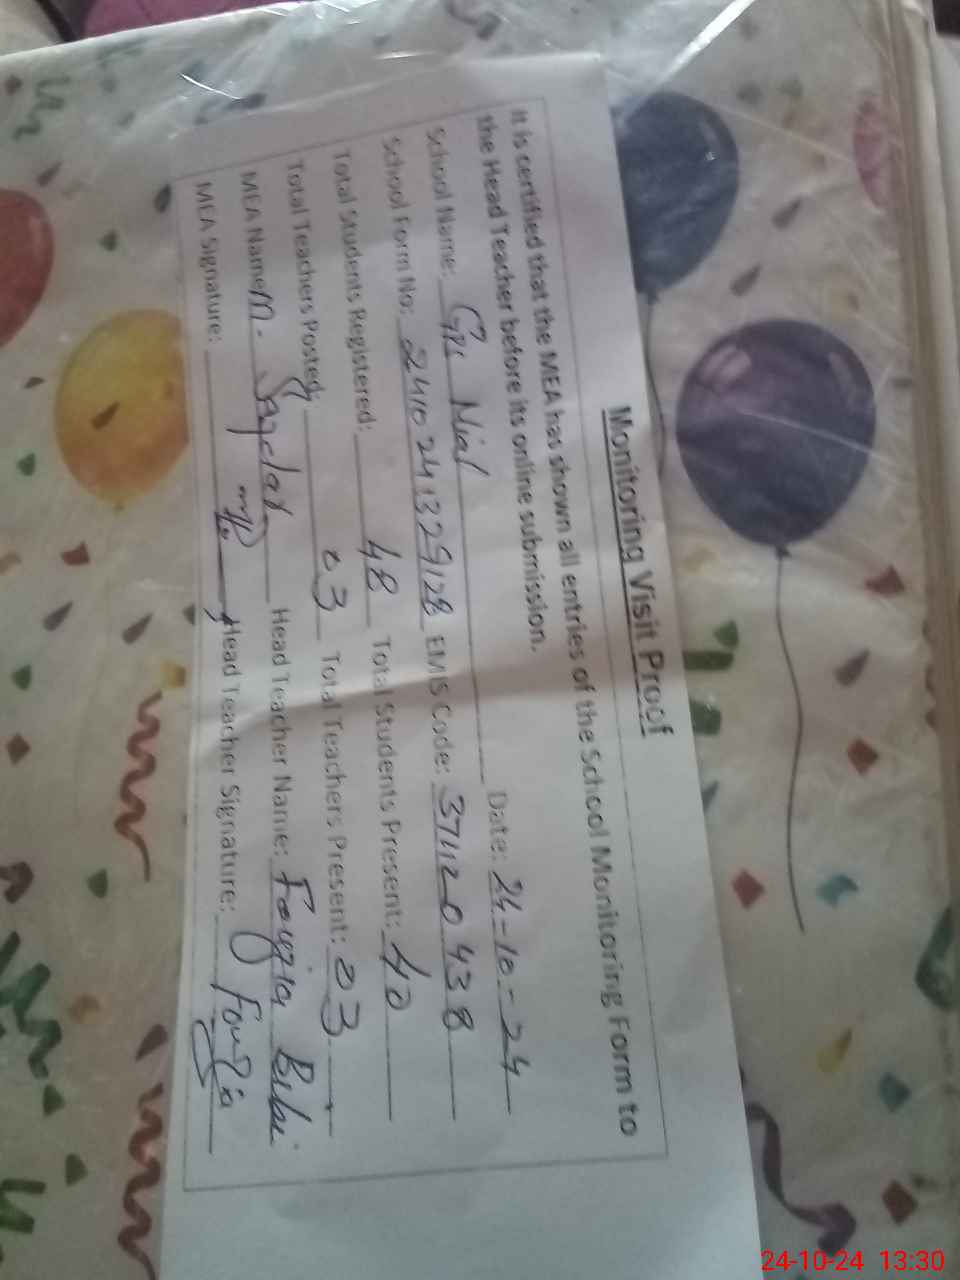 Monitoring Visit Proof
It is certified that the MEA has shown all entries of the School Monitoring Form to
the Head Teacher before its online submission.
School Name: GPS Nial Date: 24-10-24
School Form No: 2410241329128 EMIS Code: 37120438
Total Students Registered: 48 Total Students Present: 40
Total Teachers Posted: 03 Total Teachers Present: 03
MEA Name: M. Head Teacher Name: Fouzia Bibi
MEA Signature: Head Teacher Signature: Fouzia
24-10-24 13:30